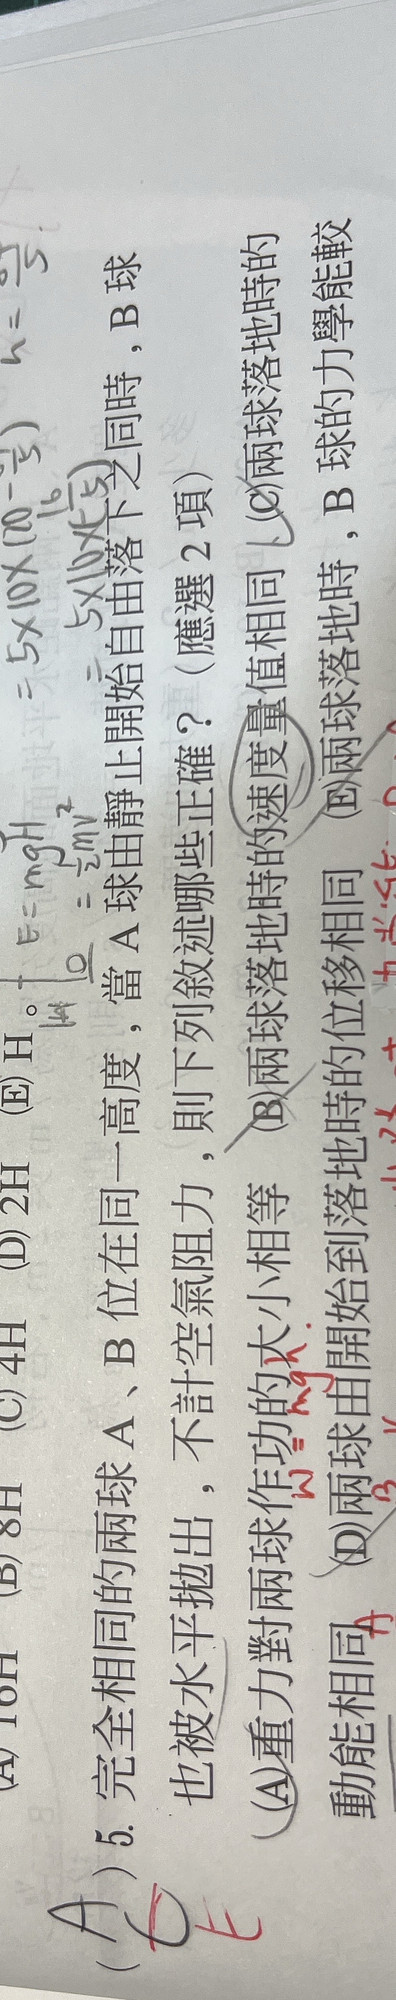 E = mgH = 5×10×(20 -
= ½mv² = 5×10×
h =
(B) 8H (C) 4H (D) 2H (E) H。
(A C E) 5. 完全相同的兩球 A、B 位在同一高度，當 A 球由靜止開始自由落下之同時，B 球
也被水平拋出，不計空氣阻力，則下列敘述哪些正確？（應選 2 項）
(A)重力對兩球作功的大小相等 (B)兩球落地時的速度量值相同 (C)兩球落地時的
W = mgh.
動能相同 (D)兩球由開始到落地時的位移相同 (E)兩球落地時，B 球的力學能較
A B